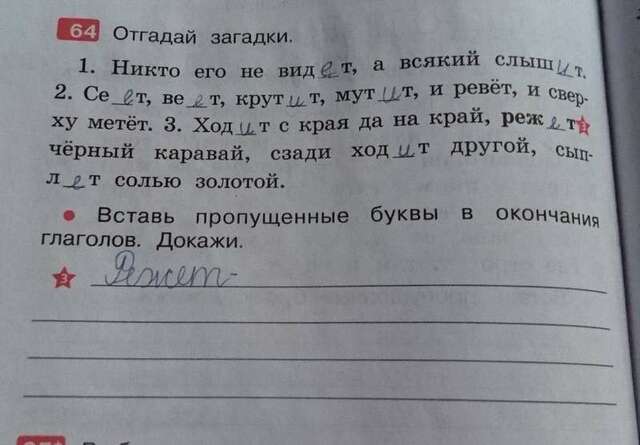 64 Отгадай загадки.
1. Никто его не видет, а всякий слышит.
2. Сеет, веет, крутит, мутит, и ревёт, и свер-
ху метёт. 3. Ходит с края да на край, режет3
чёрный каравай, сзади ходит другой, сып-
лет солью золотой.
• Вставь пропущенные буквы в окончания
глаголов. Докажи.
3 Режет-